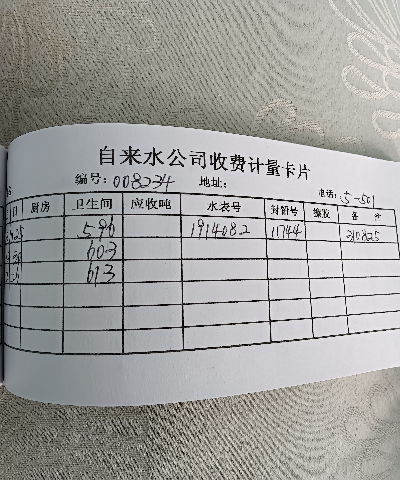 自来水公司收费计量卡片
编号: 008234 地址: 电话: 5-501
日 厨房 卫生间 应收吨 水表号 封铅号 备 注
596 1914082 11744 210825
603
613